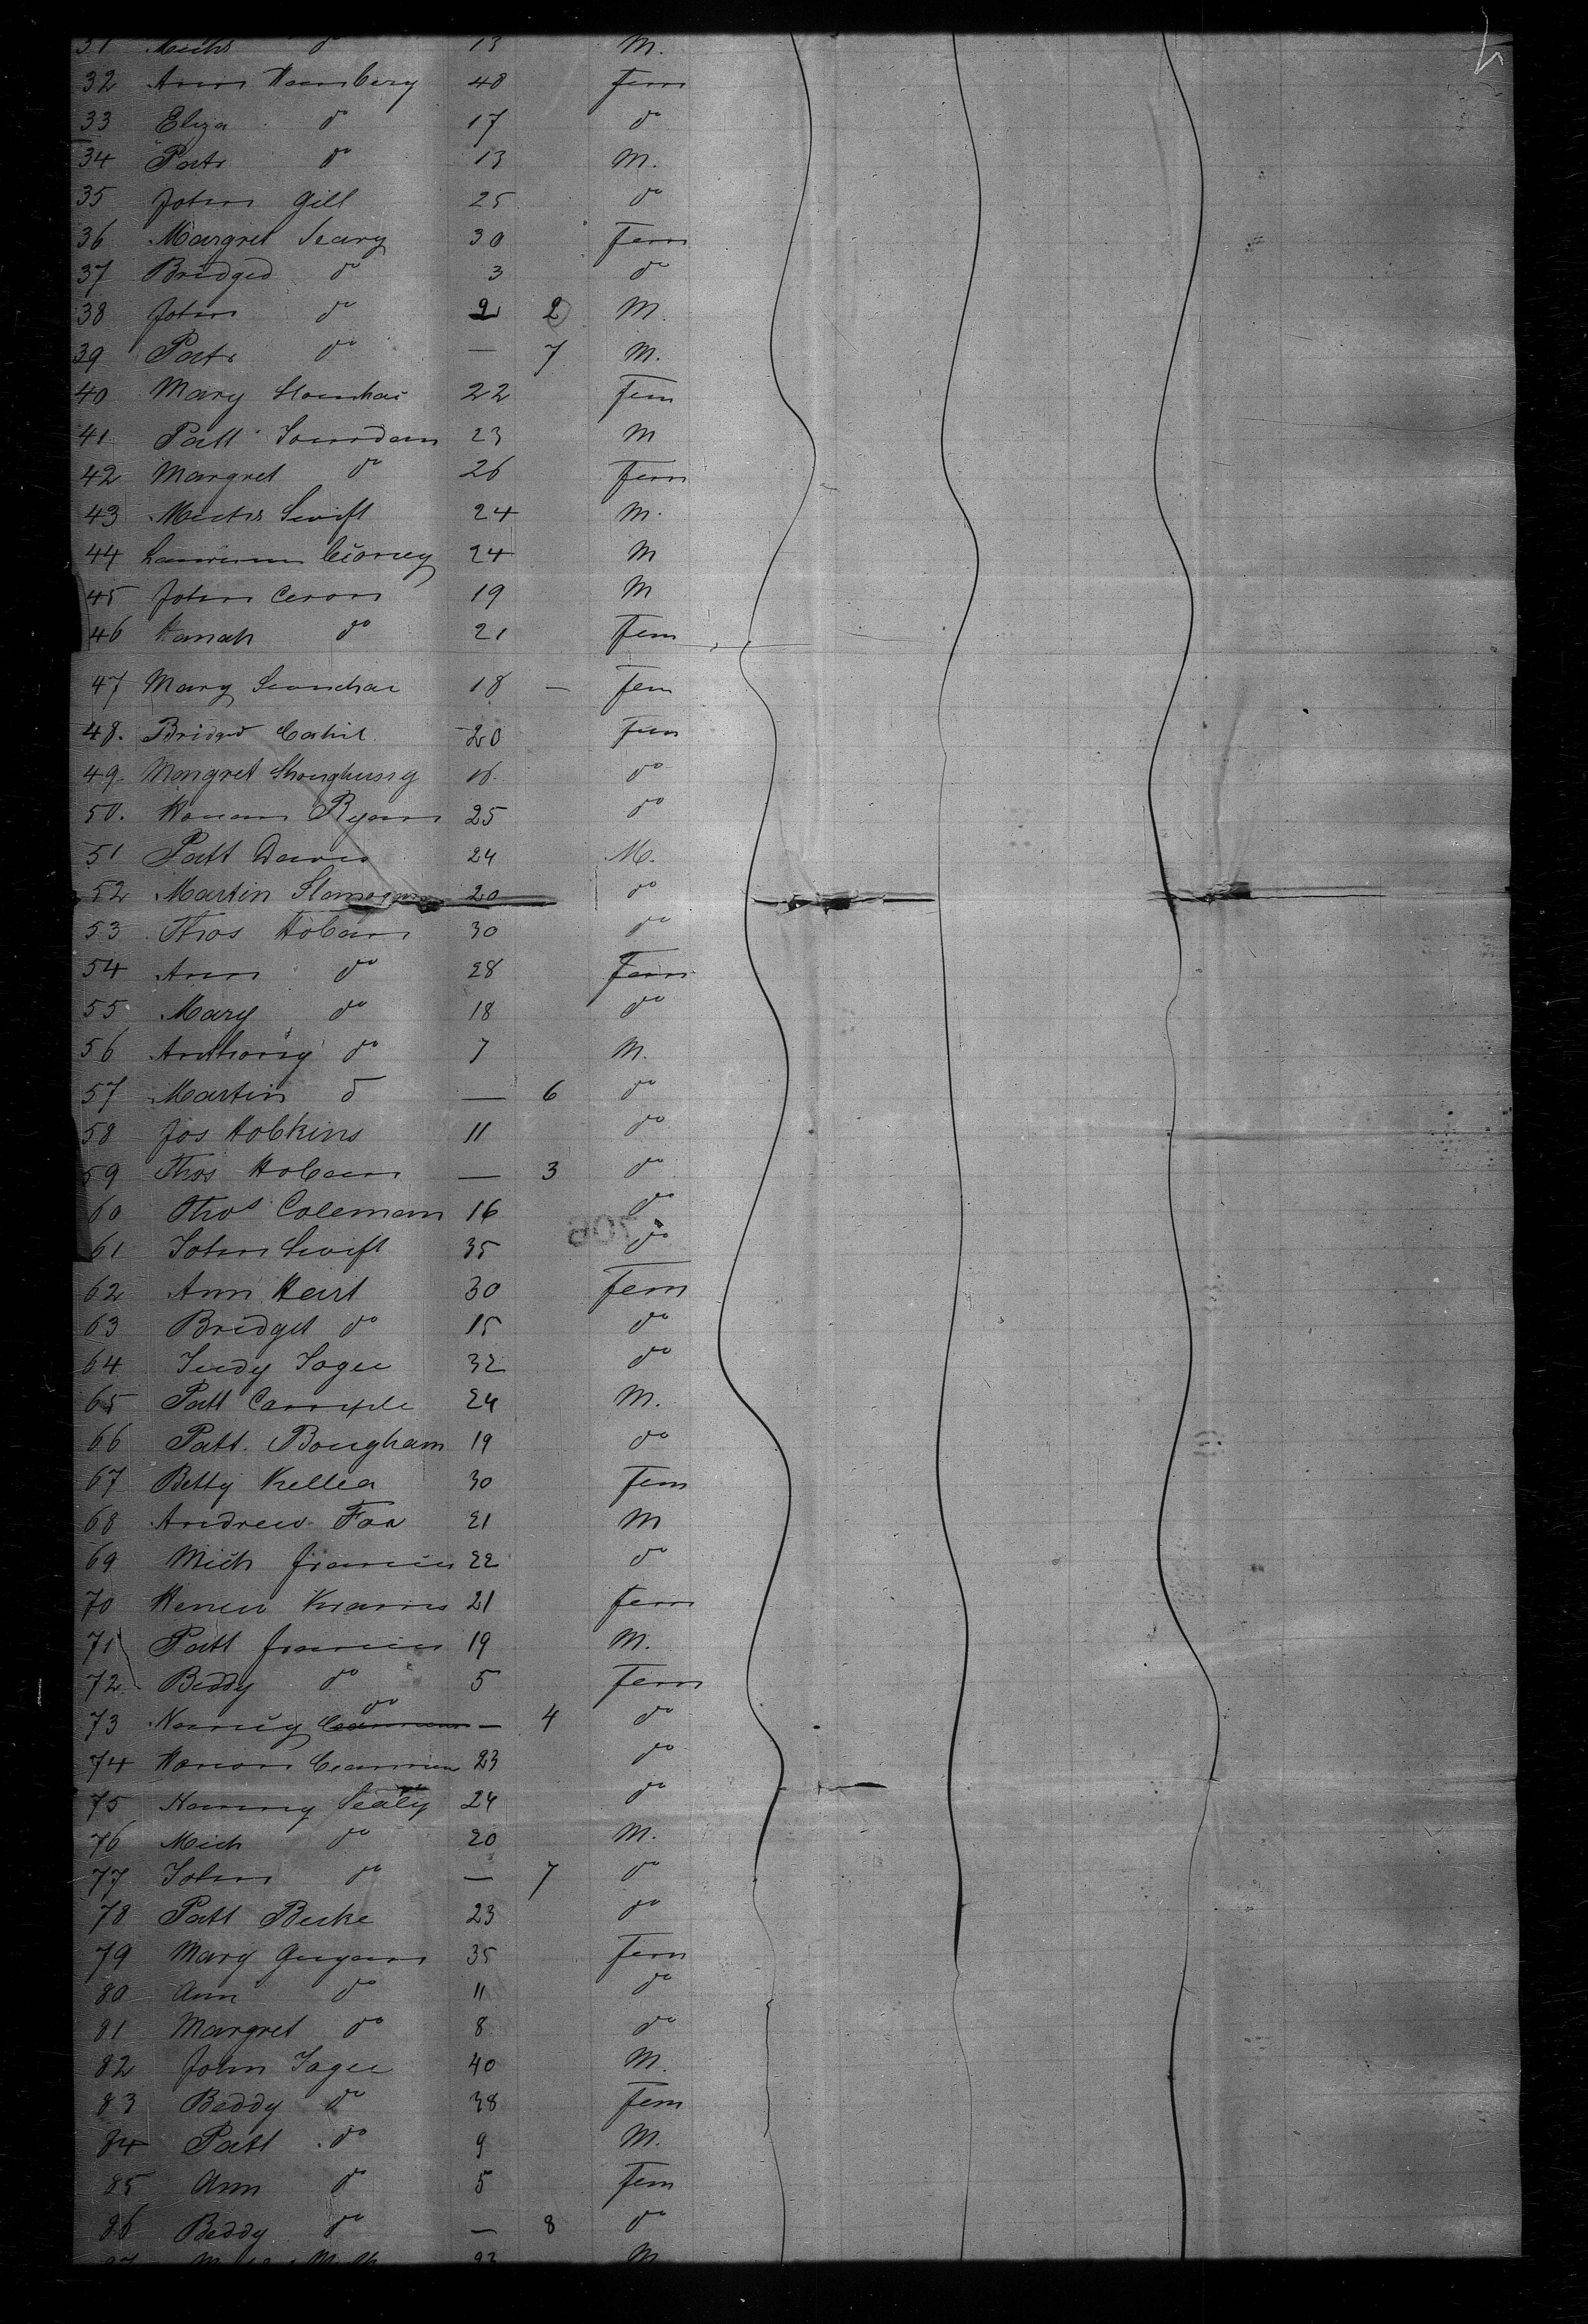 31 Mich do 13 M.
32 Ann 40 Fem
33 Eliza do 17 do
34 Patr do 13 M.
35 John Gill 25 do
36 Margret Seary 30 Fem
37 Bridged do 3 do
38 John do 2 2 M.
39 Patr do — 7 M.
40 Mary 22 Fem
41 Patt Jourdan 23 M
42 Margret do 26 Fem
43 Swift 24 M.
44 24 M
45 John Ceron 19 M
46 Hanah do 21 Fem
47 Mary 18 — Fem
48. Cahil 20 Fem
49. Margret do
50. Ryan 25 do
51 Patt 24 M.
52 Martin 20 do
53 Thos Hoban 30 do
54 Ann do 28 Fem
55 Mary do 18 do
56 Anthony do 7 M.
57 Martin do — 6 do
58 Jos Hobkins 11 do
59 Thos Hoban — 3 do
60 Thos Coleman 16 do
61 John Swift 35 do
62 Ann Hart 30 Fem
63 Bridget do 15 do
64 Judy 32 do
65 Patt 24 M.
66 Patt. Bougham 19 do
67 Betty Kellea 30 Fem
68 Andrew Fox 21 M
69 Mich Francis 22 do
70 21 Fem
71 Patt Francis 19 M.
72 Beddy do 5 Fem
73 do — 4 do
74 23 do
75 Sealy 24 do
76 Mich do 20 M.
77 John do — 7 do
78 Patt Burke 23 do
79 Mary 35 Fem
80 Ann do 11 do
81 Margret do 8 do
82 John 40 M.
83 Beddy do 38 Fem
84 Patt do 9 M.
85 Ann do 5 Fem
86 Beddy do — 8 do
87 23 M